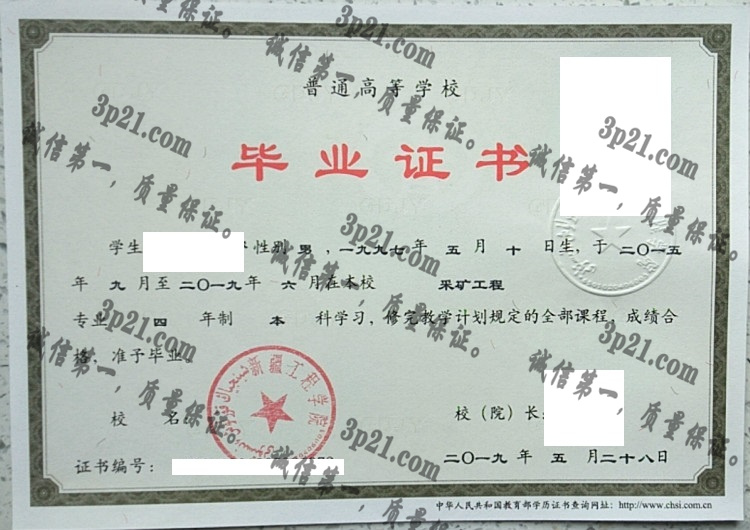 普通高等学校
毕业证书
学生 性别 男，一九九七年 五 月 十 日生，于二〇一五
年 九 月至二〇一九年 六 月在本校 采矿工程
专业 四 年制 本 科学习，修完教学计划规定的全部课程，成绩合
格，准予毕业。
新疆工程学院
校 名： 校（院）长：
证书编号：
二〇一九 年 五 月二十八日
中华人民共和国教育部学历证书查询网址：http://www.chsi.com.cn
3p21.com
诚信第一，质量保证。
3p21.com
诚信第一，质量保证。
3p21.com
诚信第一，质量保证。
3p21.com
诚信第一，质量保证。
3p21.com
诚信第一，质量保证。
3p21.com
诚信第一，质量保证。
3p21.com
诚信第一，质量保证。